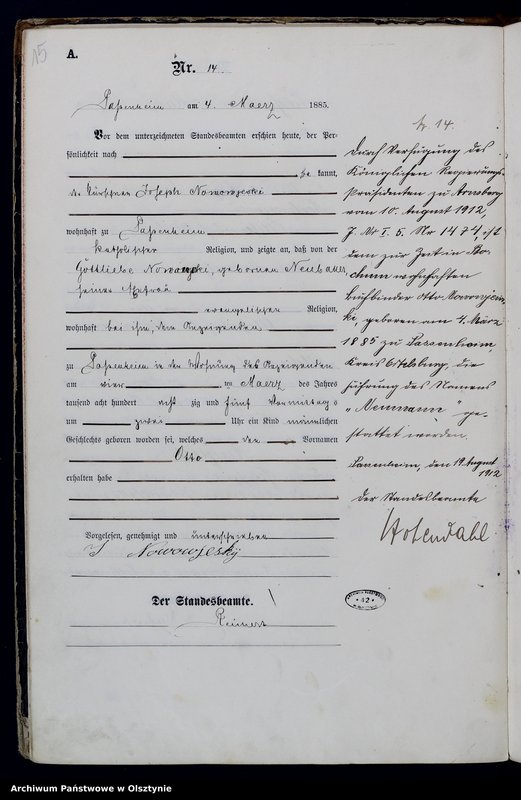 15
A.
Nr. 14.
Passenheim am 4. Maerz 1885.
Vor dem unterzeichneten Standesbeamten erschien heute, der Per-
sönlichkeit nach
be kannt,
der Kürschner Joseph Nowowjeski
wohnhaft zu Passenheim
katholischer Religion, und zeigte an, daß von der
Gottliebe geborenen
seiner Ehefrau
evangelischer Religion,
wohnhaft bei ihm, dem Anzeigenden
zu Passenheim in der Wohnung des Anzeigenden
am vier ten Maerz des Jahres
tausend acht hundert acht zig und fünf Vormittags
um zwei Uhr ein Kind männlichen
Geschlechts geboren worden sei, welches den Vornamen
Otto
erhalten habe
Vorgelesen, genehmigt und unterschrieben
J Nowowjeski
Der Standesbeamte.
Reinert
Nr. 14.
Durch Verfügung des
Königlichen Regierungs-
präsidenten zu Arnsberg
vom 10. August 1912,
J. Nr I. 5. Nr 1474, ist
dem zur Zeit in Bo-
chum wohnhaften
Buchbinder Otto Nowowjes-
ki, geboren am 4. März
1885 zu Passenheim,
Kreis Ortelsburg, die
Führung des Namens
„Neumann" ge-
stattet worden.
Passenheim, den 19. August
1912
Der Standesbeamte
42
Archiwum Państwowe w Olsztynie